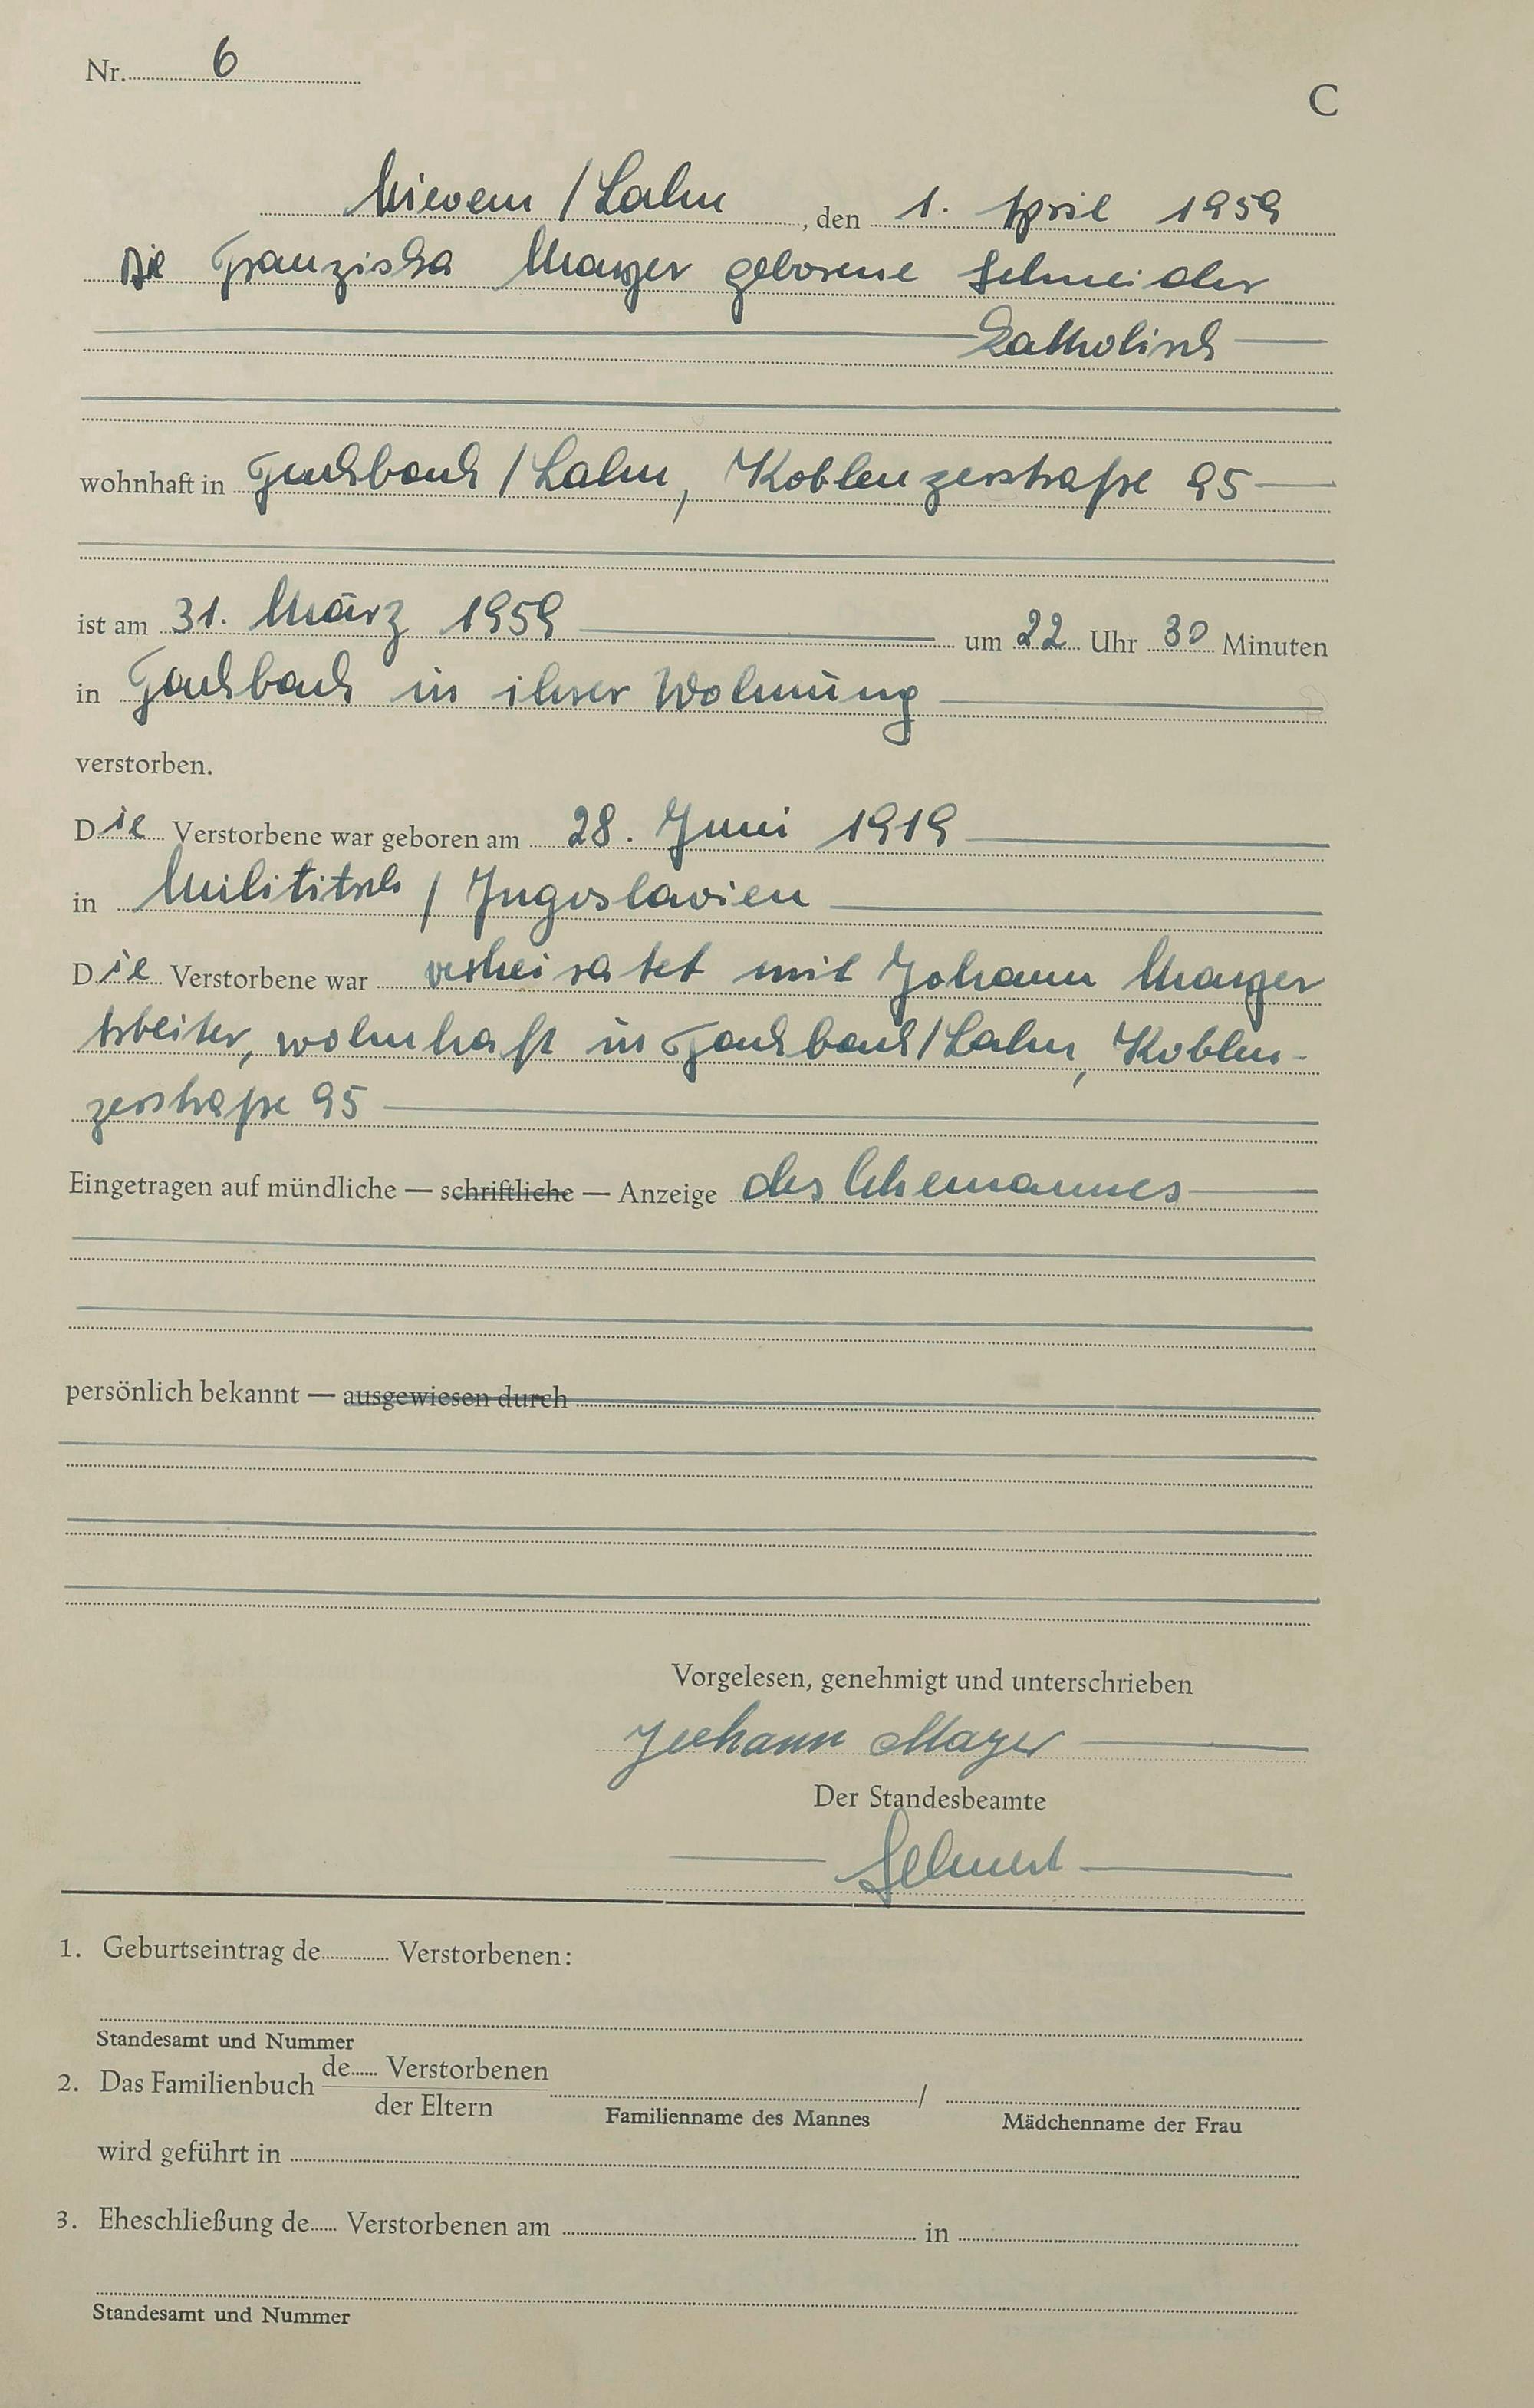 Nr. 6
C
Mievern / Lahn, den 1. April 1959
Die Franziska Mayer geborene Schneider
katholisch
wohnhaft in Fachbach / Lahn, Koblenzerstraße 95
ist am 31. März 1959 um 22 Uhr 30 Minuten
in Fachbach in ihrer Wohnung
verstorben.
Die Verstorbene war geboren am 28. Juni 1919
in Milititsch / Jugoslavien
Die Verstorbene war verheiratet mit Johann Mayer
Arbeiter, wohnhaft in Fachbach / Lahn, Koblen-
zerstraße 95
Eingetragen auf mündliche — schriftliche — Anzeige des Ehemannes
persönlich bekannt — ausgewiesen durch
Vorgelesen, genehmigt und unterschrieben
Johann Mayer
Der Standesbeamte
1. Geburtseintrag de Verstorbenen:
Standesamt und Nummer
2. Das Familienbuch de Verstorbenen /
der Eltern
Familienname des Mannes Mädchenname der Frau
wird geführt in
3. Eheschließung de Verstorbenen am in
Standesamt und Nummer